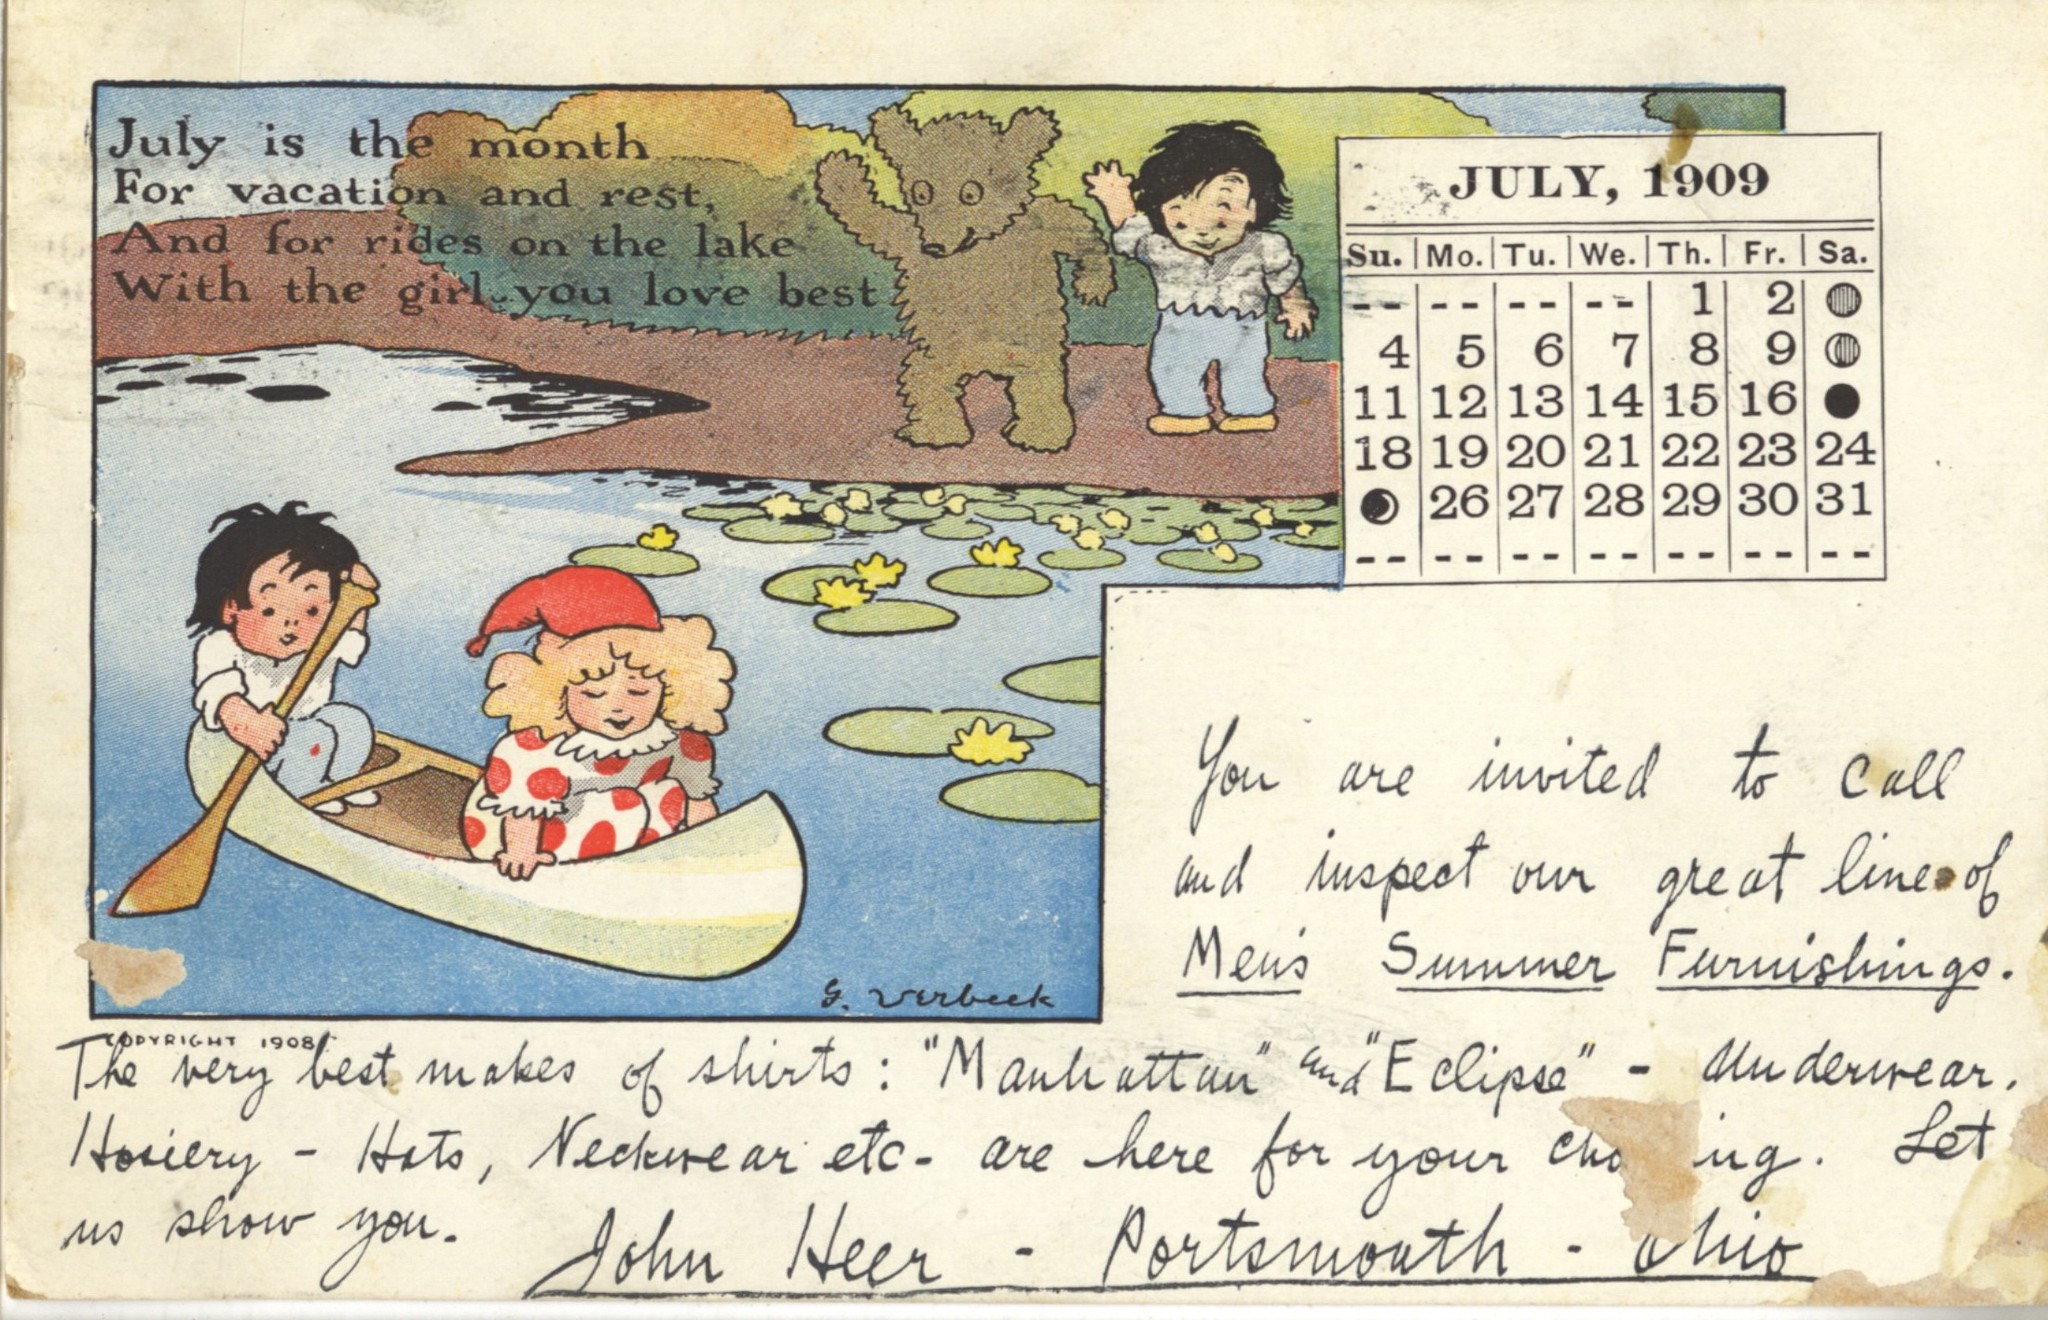 July is the month
For vacation and rest,
And for rides on the lake
With the girl you love best
JULY, 1909
Su. Mo. Tu. We. Th. Fr. Sa.
-- -- -- -- 1 2
4 5 6 7 8 9
11 12 13 14 15 16
18 19 20 21 22 23 24
26 27 28 29 30 31
-- -- -- -- -- -- --
G. Verbeek
COPYRIGHT 1908
You are invited to call
and inspect our great line of
Men's Summer Furnishings.
The very best makes of shirts: "Manhattan" and "Eclipse" - Underwear.
Hosiery - Hats, Neckwear etc - are here for your . Let
us show you.
John Heer - Portsmouth - Ohio